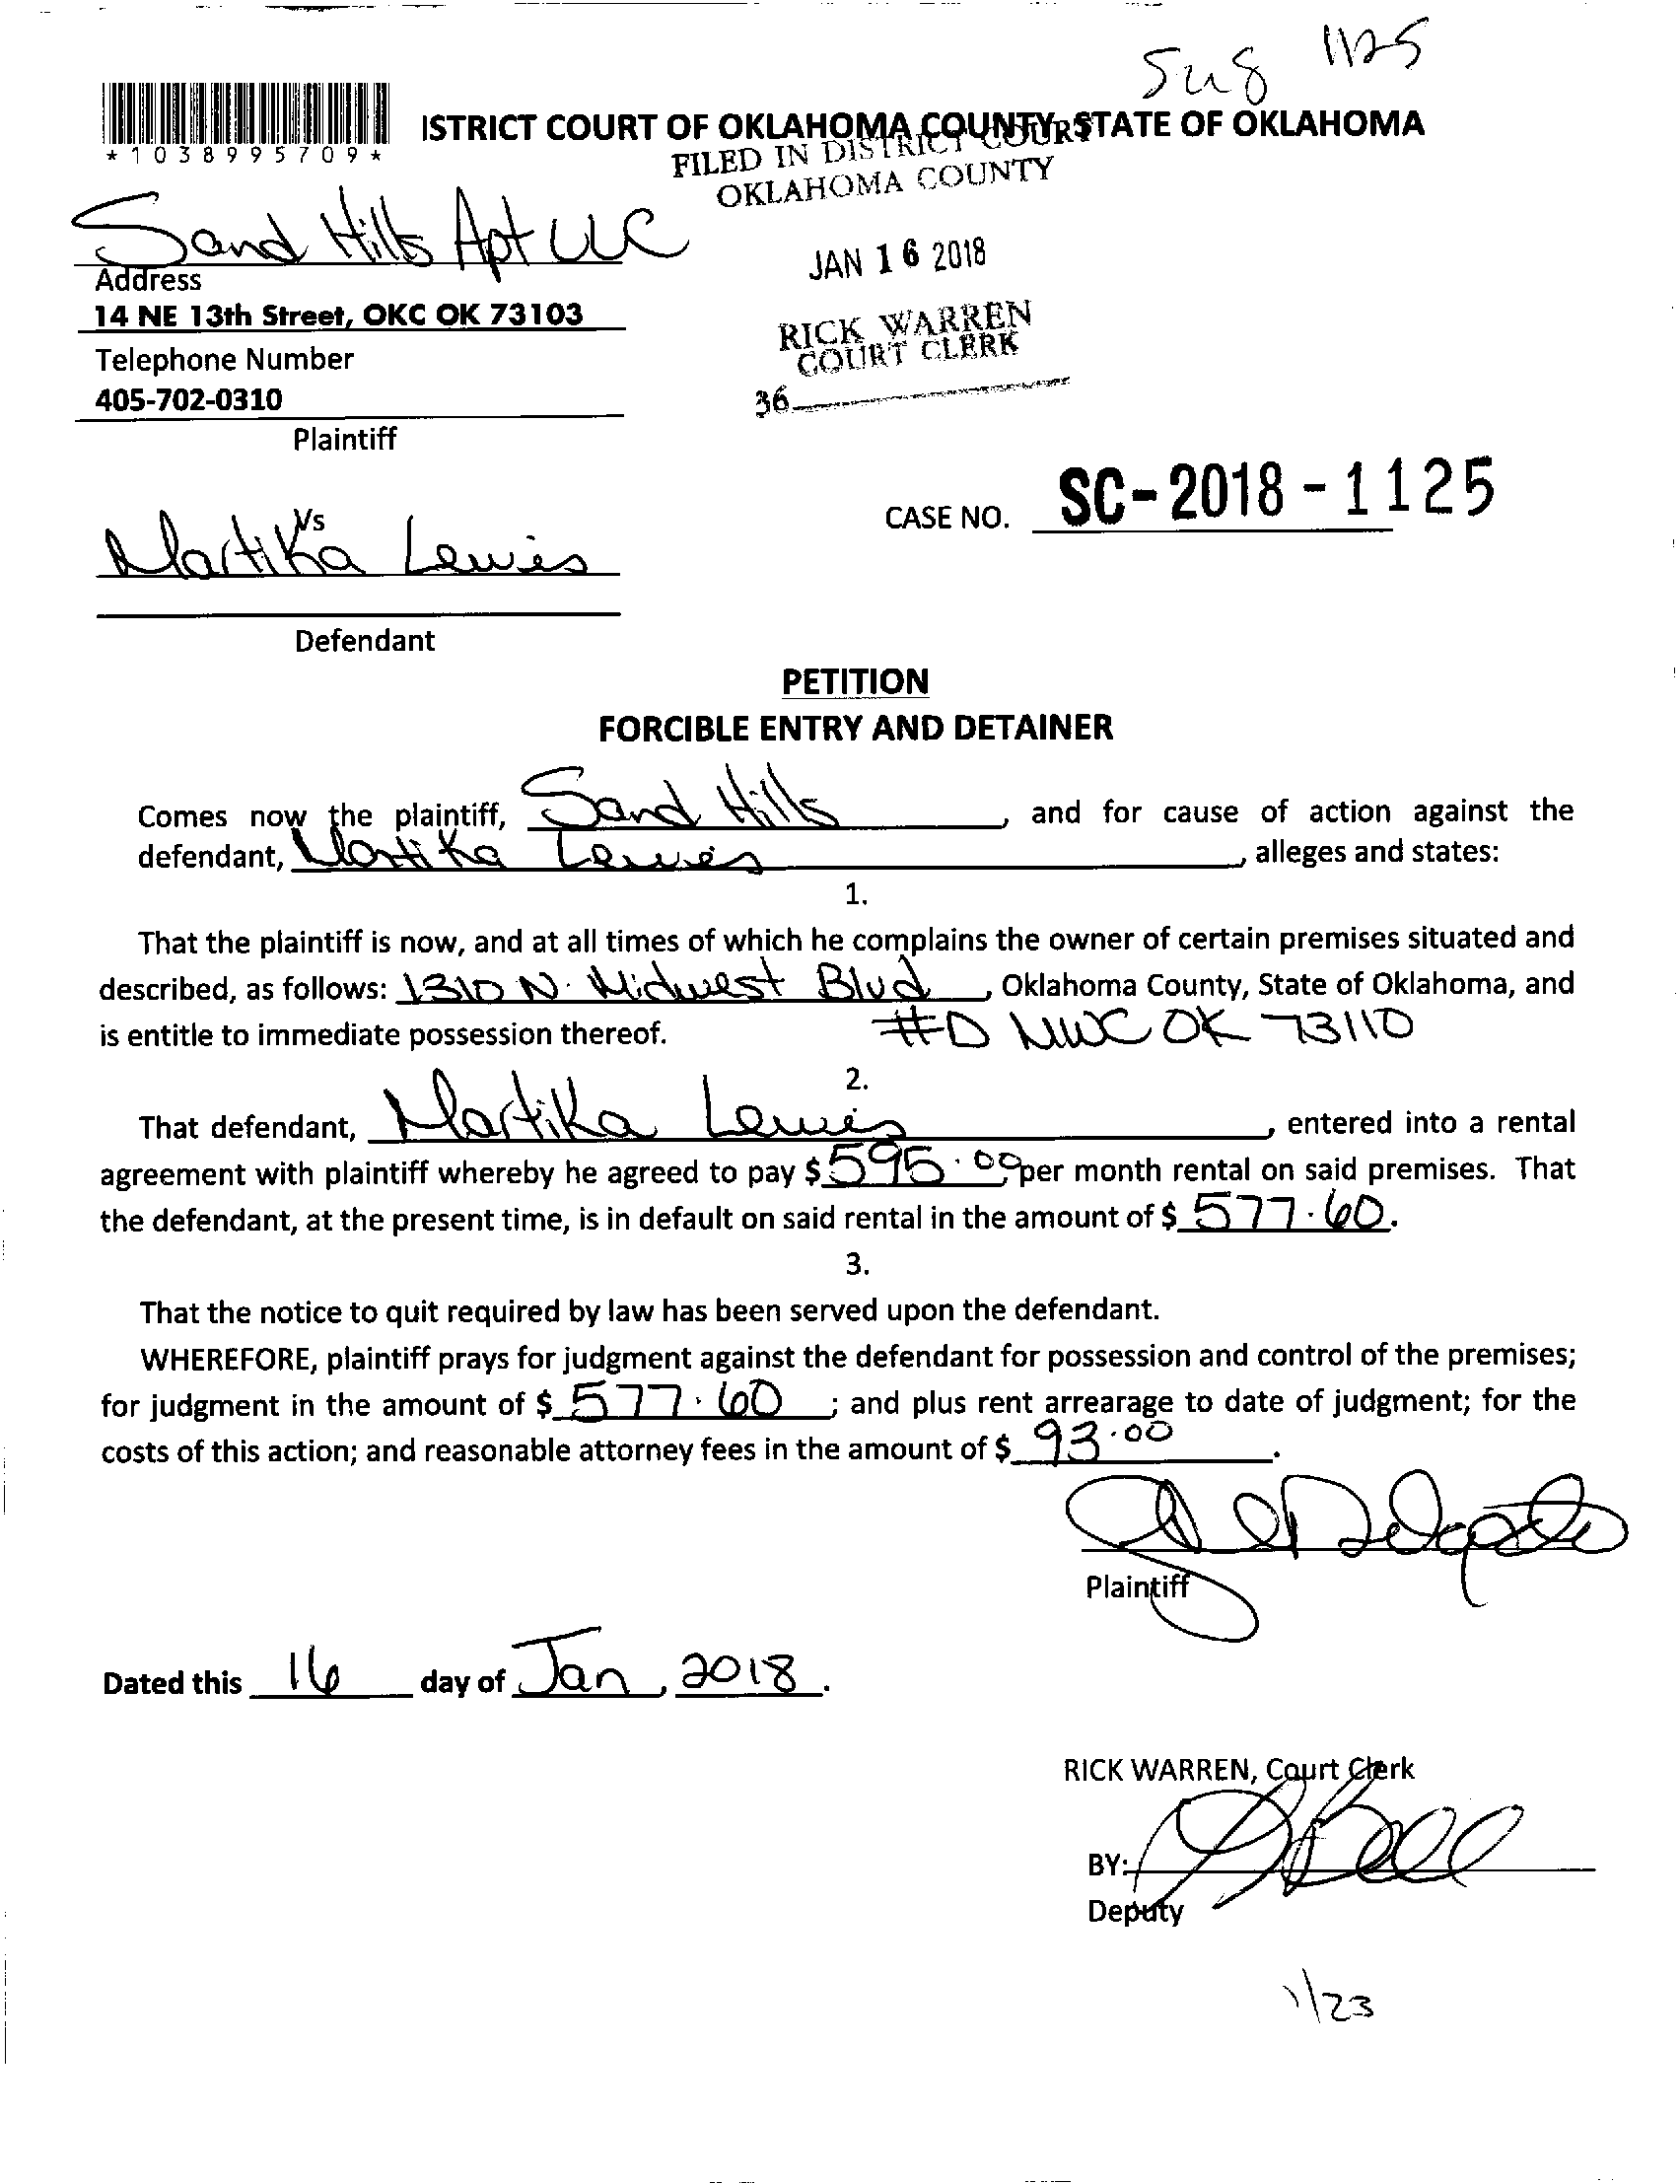 1125
*1038995709*
ISTRICT COURT OF OKLAHOMA COUNTY, STATE OF OKLAHOMA
FILED IN DISTRICT COURT
OKLAHOMA COUNTY
Sand Hills Apt LLC
JAN 16 2018
Address
14 NE 13th Street, OKC OK 73103
RICK WARREN
COURT CLERK
Telephone Number
405-702-0310
36
Plaintiff
CASE NO. SC-2018-1125
Vs
Martika Lewis
Defendant
PETITION
FORCIBLE ENTRY AND DETAINER
Comes now the plaintiff, Sand Hills, and for cause of action against the
defendant, Martika Lewis, alleges and states:
1.
That the plaintiff is now, and at all times of which he complains the owner of certain premises situated and
described, as follows: 1310 N. Midwest Blvd, Oklahoma County, State of Oklahoma, and
is entitle to immediate possession thereof. #D MWC OK 73110
2.
That defendant, Martika Lewis, entered into a rental
agreement with plaintiff whereby he agreed to pay $ 595.00, per month rental on said premises. That
the defendant, at the present time, is in default on said rental in the amount of $ 577.60.
3.
That the notice to quit required by law has been served upon the defendant.
WHEREFORE, plaintiff prays for judgment against the defendant for possession and control of the premises;
for judgment in the amount of $ 577.60; and plus rent arrearage to date of judgment; for the
costs of this action; and reasonable attorney fees in the amount of $ 93.00.
Plaintiff
Dated this 16 day of Jan, 2018.
RICK WARREN, Court Clerk
BY:
Deputy
1/23